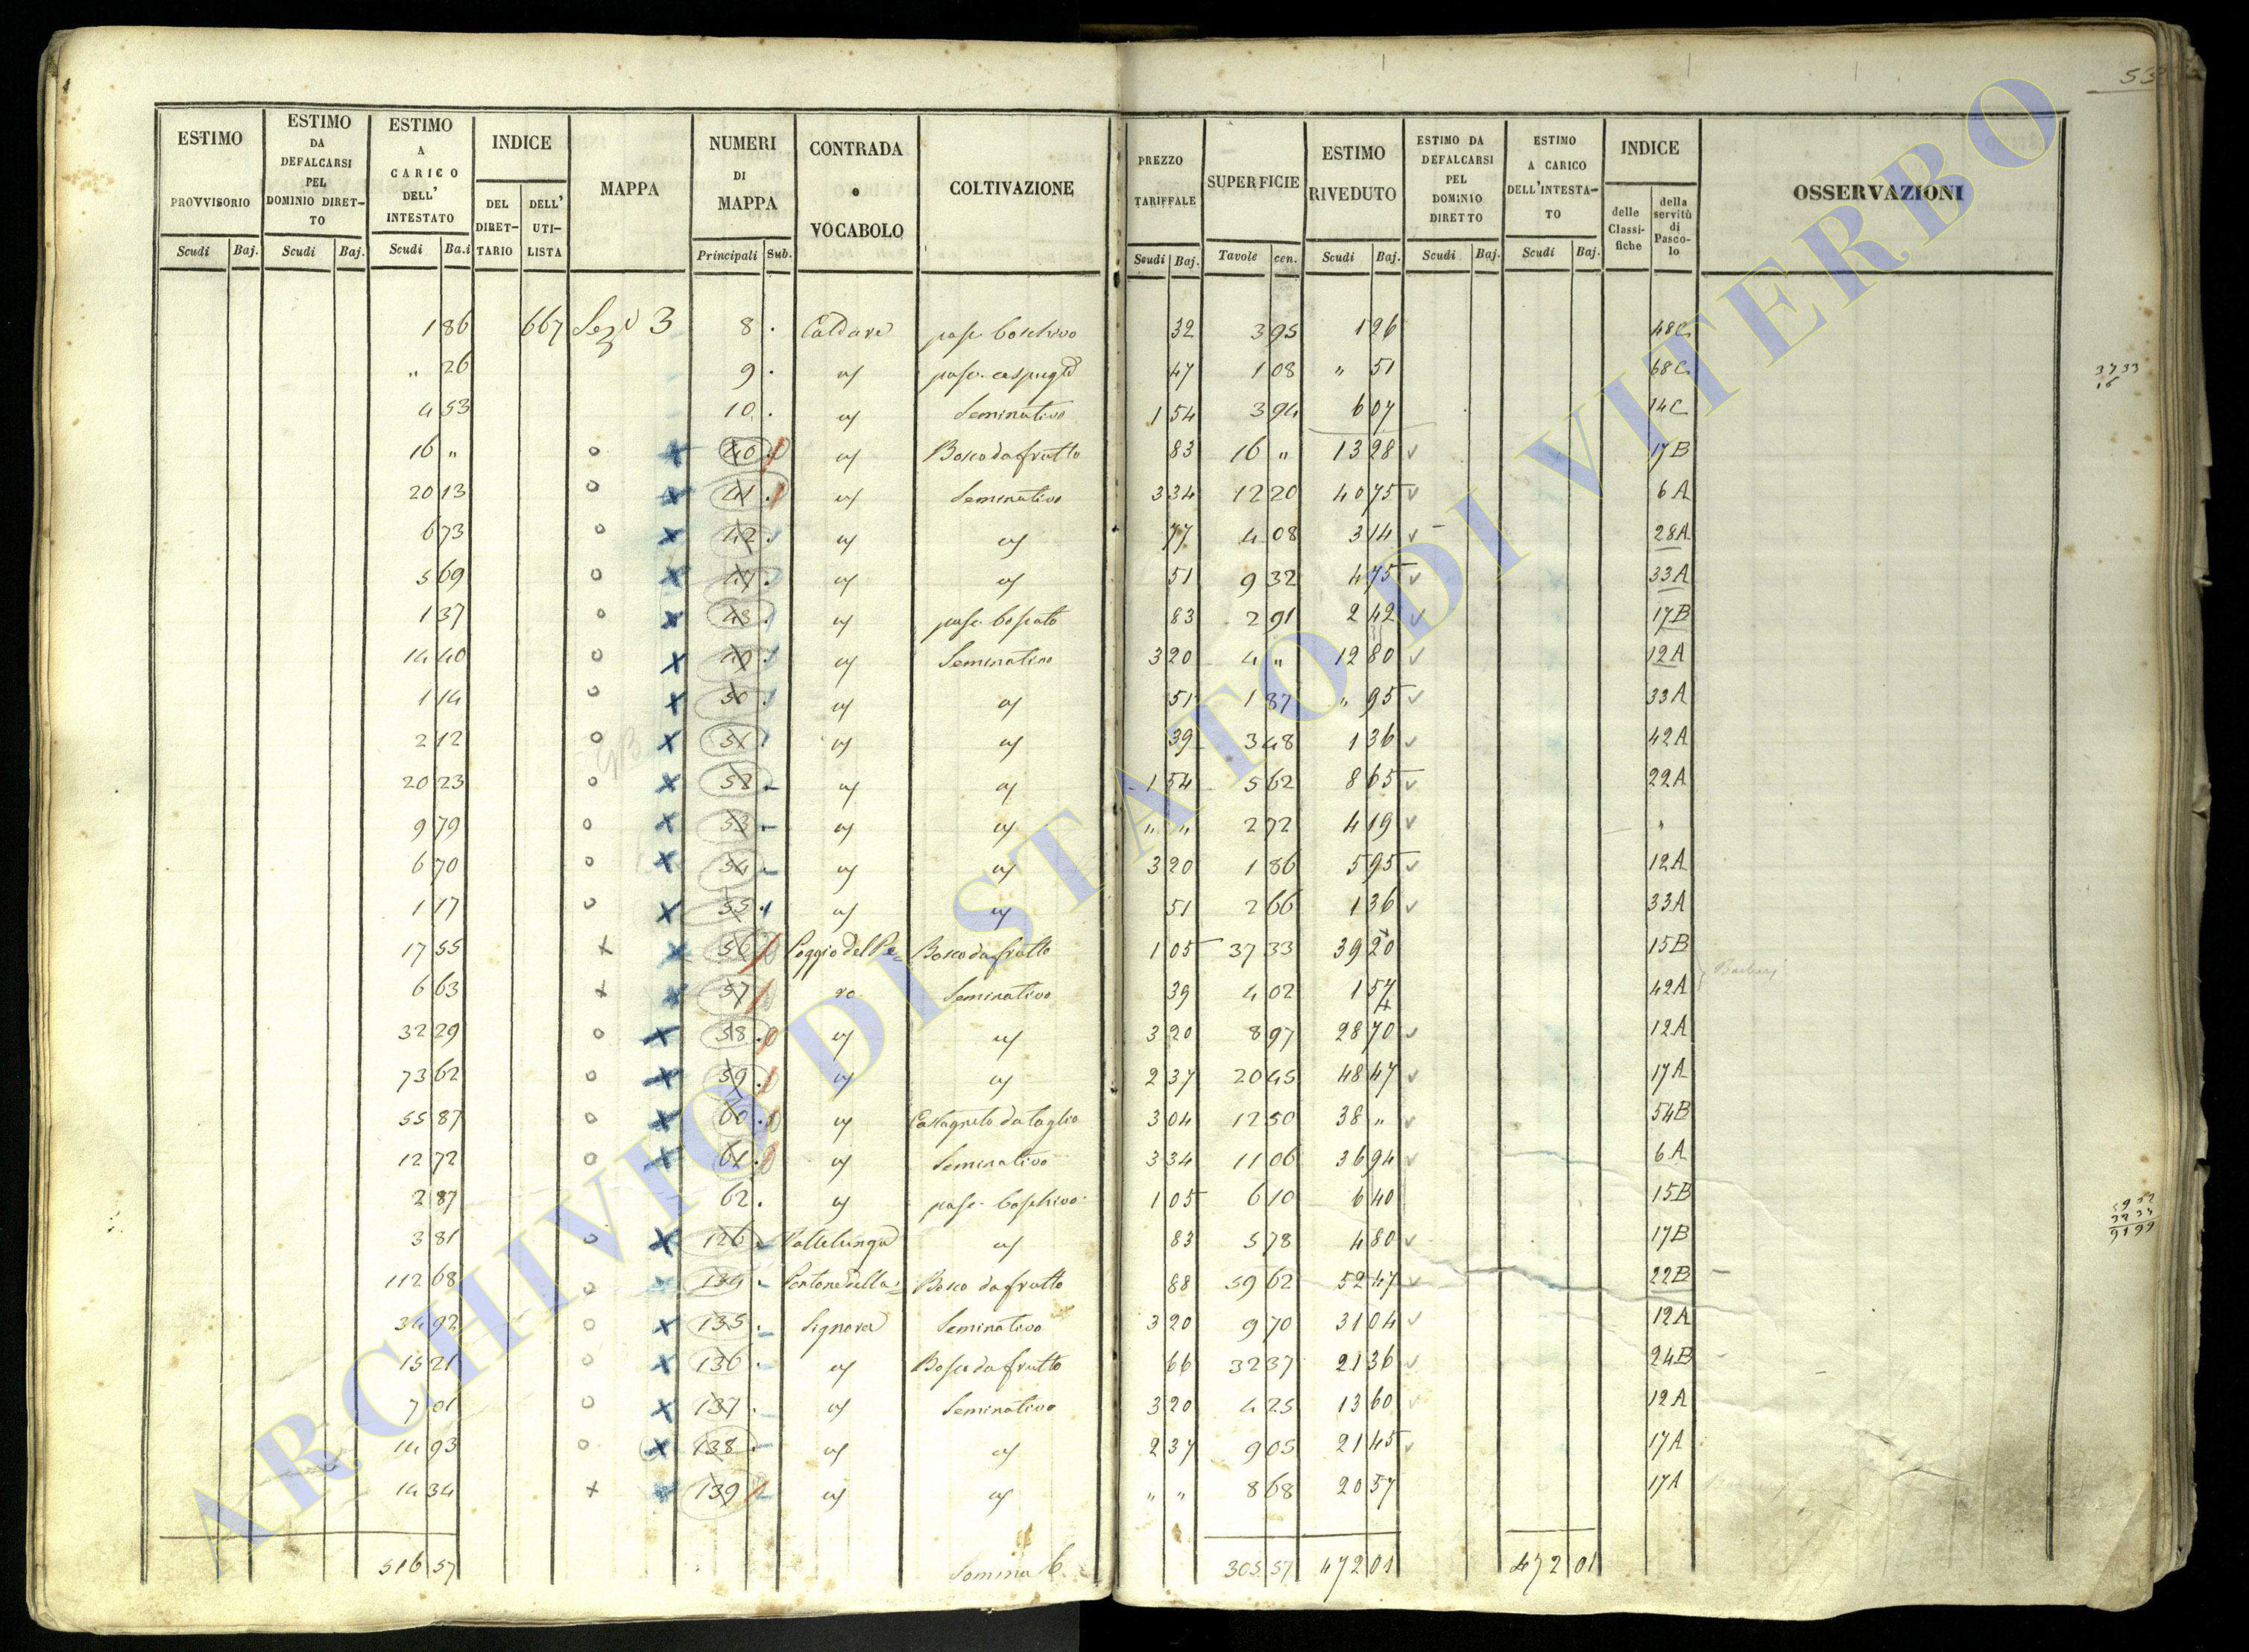 53
ESTIMO PROVVISORIO Scudi Baj.
ESTIMO DA DEFALCARSI PEL DOMINIO DIRETTO Scudi Baj.
ESTIMO A CARICO DELL' INTESTATO Scudi Ba.i
INDICE DEL DIRETTARIO DELL' UTILISTA
MAPPA
NUMERI DI MAPPA Principali Sub.
CONTRADA o VOCABOLO
COLTIVAZIONE
PREZZO TARIFFALE Scudi Baj.
SUPERFICIE Tavole cen.
ESTIMO RIVEDUTO Scudi Baj.
ESTIMO DA DEFALCARSI PEL DOMINIO DIRETTO Scudi Baj.
ESTIMO A CARICO DELL'INTESTATO Scudi Baj.
INDICE delle Classifiche della servitù di Pascolo
OSSERVAZIONI
1 86 667 3 8 Caldare pasc. boschivo 32 3 95 1 26 48C
" 26 9 pasc. cespugl 47 1 08 " 51 68C
4 53 10 Seminativo 1 54 3 94 6 07 14C
16 " 40 Bosco da frutto 83 16 " 13 28 17B
20 13 41 Seminativo 3 34 12 20 40 75 6A
6 73 42 77 4 08 3 14 28A
5 69 47 51 9 32 4 75 33A
1 37 48 pasc. boscato 83 2 91 2 42 17B
14 40 49 Seminativo 3 20 4 " 12 80 12A
1 14 50 51 1 87 " 95 33A
2 12 51 39 3 48 1 36 42A
20 23 52 1 54 5 62 8 65 22A
9 79 53 " " 2 72 4 19 "
6 70 54 3 20 1 86 5 95 12A
1 17 55 51 2 66 1 36 33A
17 55 56 Poggio del Pe= Bosco da frutto 1 05 37 33 39 20 15B
6 63 57 ro Seminativo 39 4 02 1 57 42A
32 29 58 3 20 8 97 28 70 12A
73 62 59 2 37 20 45 48 47 17A
55 87 60 Castagneto da taglio 3 04 12 50 38 " 54B
12 72 61 Seminativo 3 34 11 06 36 94 6A
2 87 62 pasc. boschivo 1 05 6 10 6 40 15B
3 81 126 Vallelunga 83 5 78 4 80 17B
112 68 134 Pontone della= Bosco da frutto 88 59 62 52 47 22B
34 92 135 Signora Seminativo 3 20 9 70 31 04 12A
15 21 136 Bosco da frutto 66 32 37 21 36 24B
7 01 137 Seminativo 3 20 4 25 13 60 12A
14 93 138 2 37 9 05 21 45 17A
14 34 139 " " 8 68 20 57 17A
516 57 Somma 305 57 472 01 472 01
ARCHIVIO DI STATO DI VITERBO